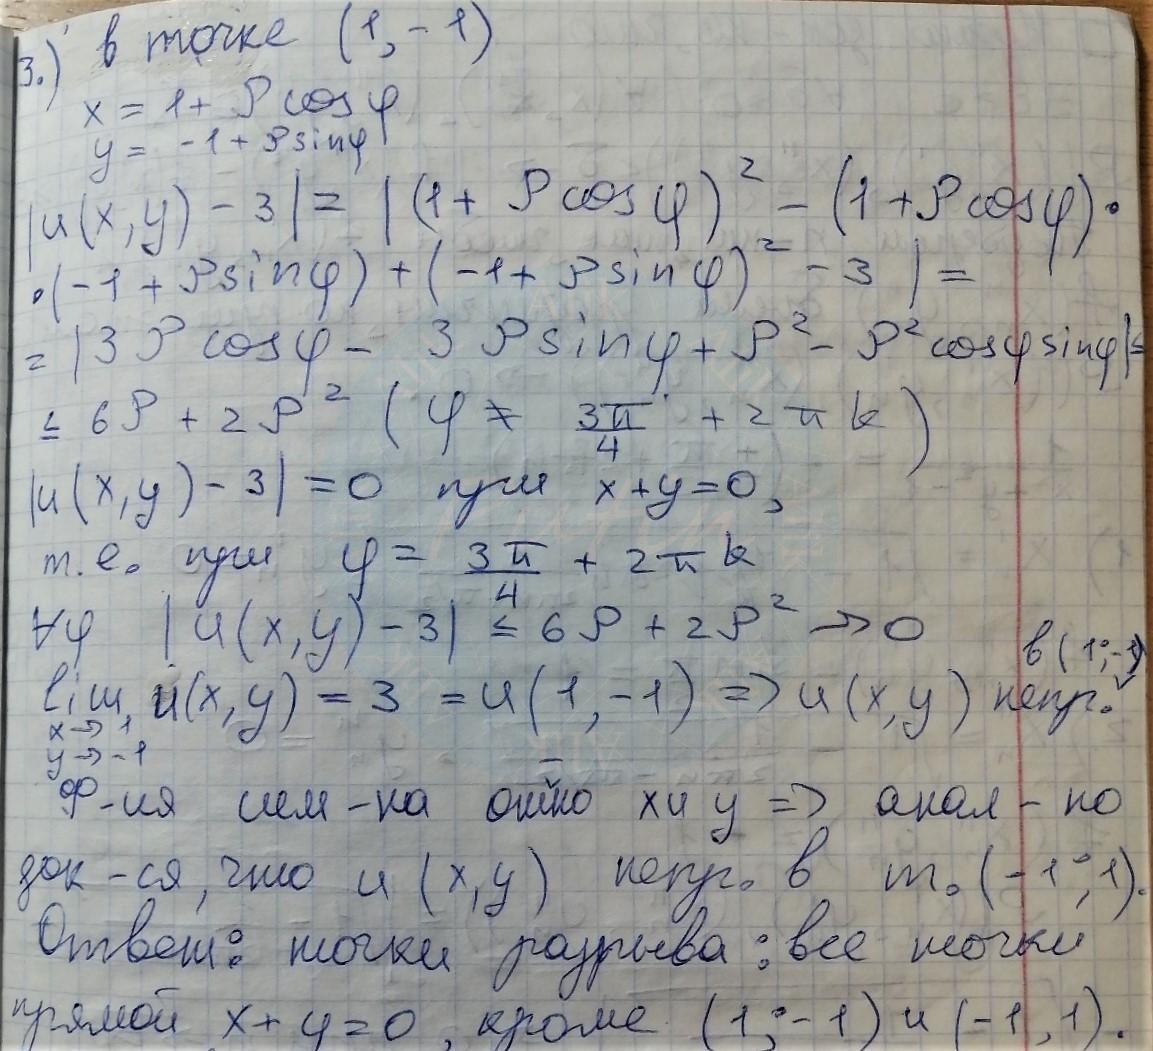 3.) в точке (1, -1)
x = 1 + ρ cos φ
y = -1 + ρ sin φ
|u(x,y) - 3| = |(1 + ρ cos φ)² - (1 + ρ cos φ) ·
· (-1 + ρ sin φ) + (-1 + ρ sin φ)² - 3| =
= |3ρ cos φ - 3ρ sin φ + ρ² - ρ² cos φ sin φ| ≤
≤ 6ρ + 2ρ² (φ ≠ 3π/4 + 2πk)
|u(x,y) - 3| = 0 при x + y = 0,
т.е. при φ = 3π/4 + 2πk
∀φ |u(x,y) - 3| ≤ 6ρ + 2ρ² → 0
lim u(x,y) = 3 = u(1, -1) => u(x,y) непр. в (1; -1)
x → 1
y → -1
Ф-ия сим-на отно x и y => анал-но
док-ся, что u(x,y) непр. в т. (-1; 1).
Ответ: точки разрыва: все точки
прямой x + y = 0, кроме (1; -1) и (-1, 1).